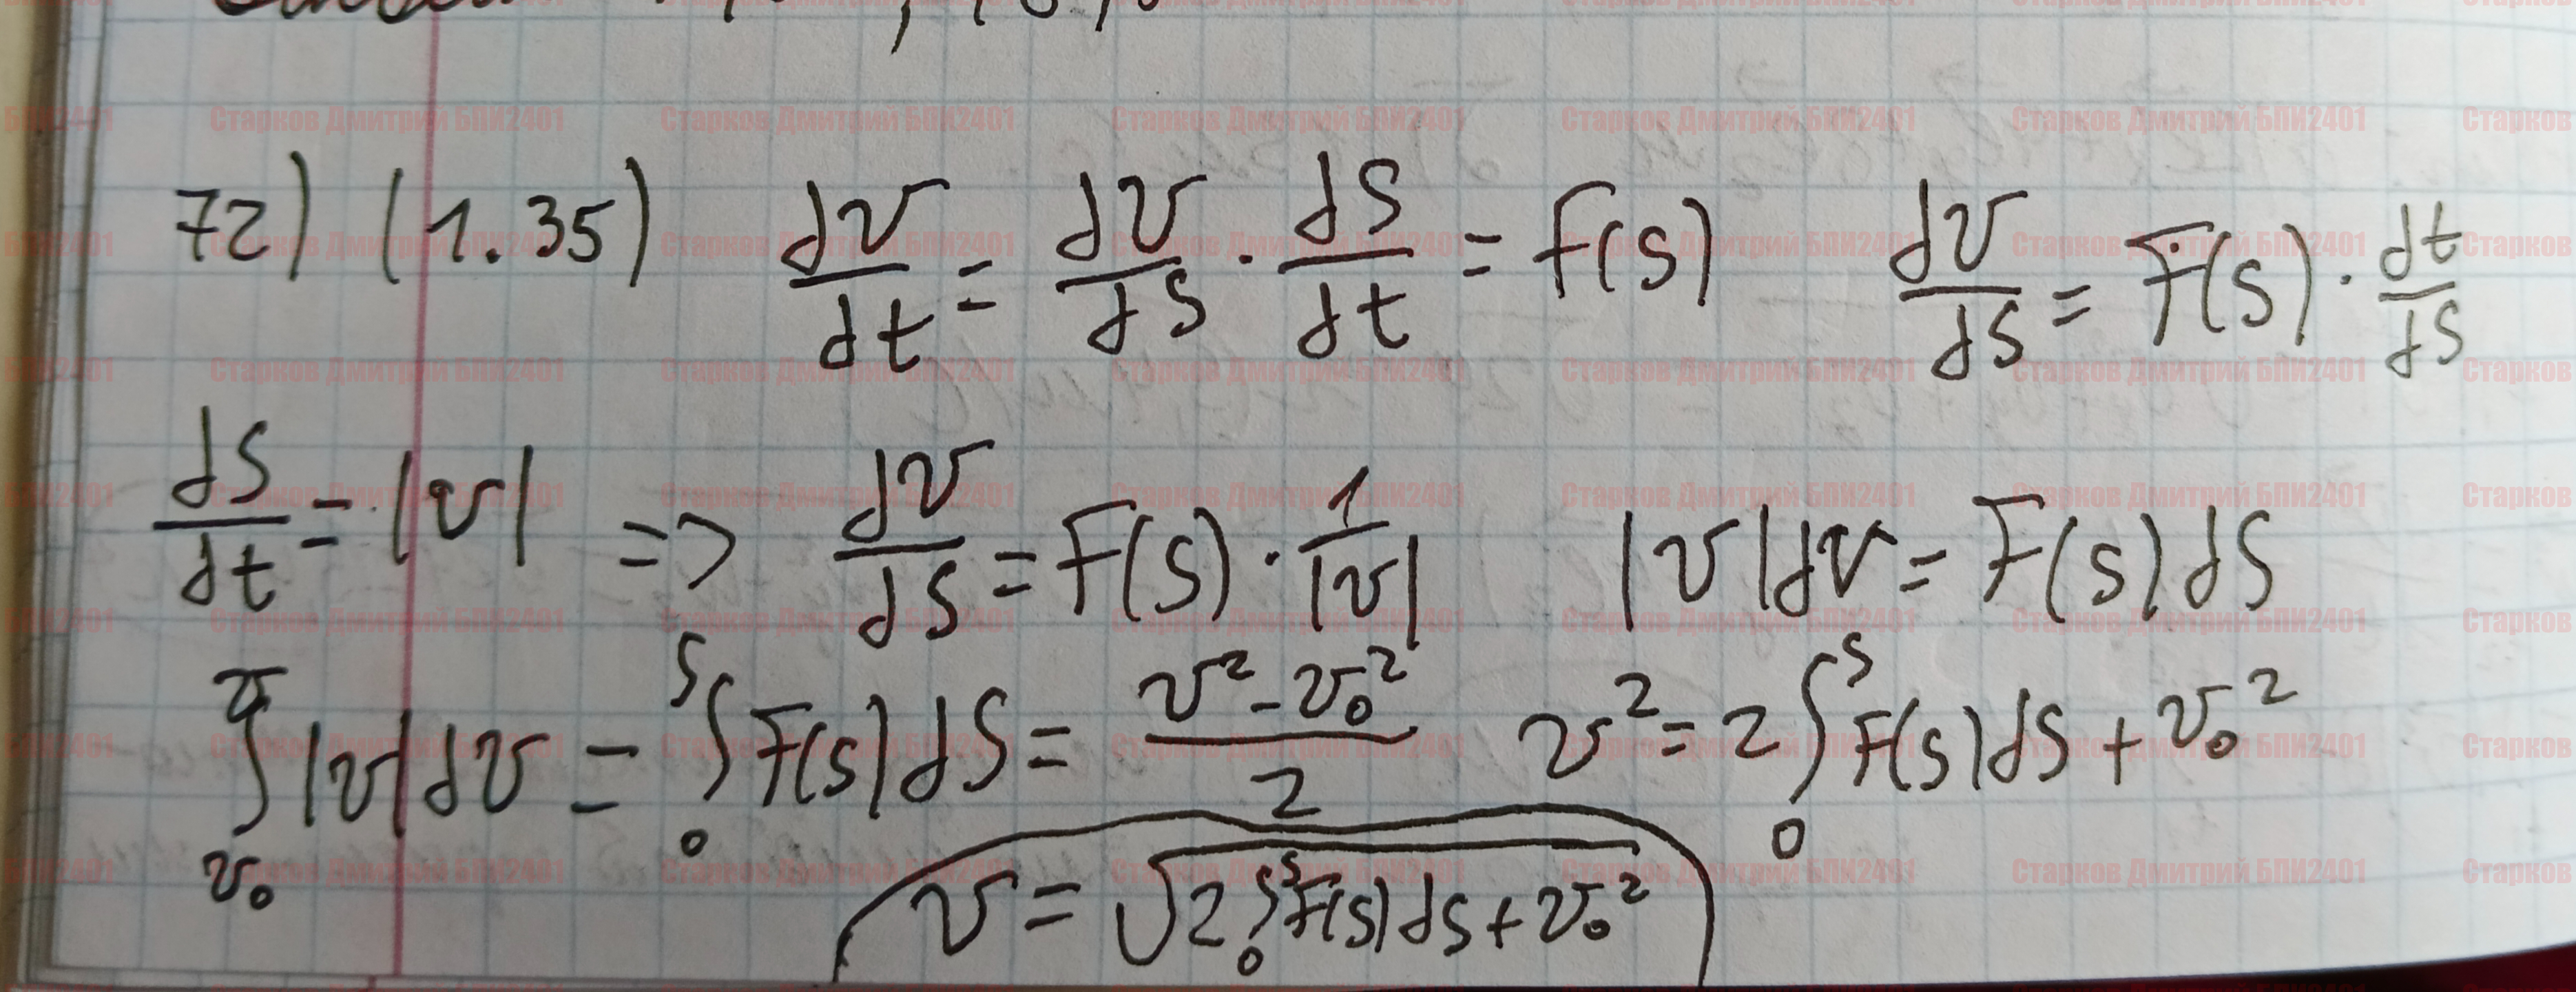 72) (1.35) dv/dt = dv/ds · ds/dt = F(s) dv/ds = F(s) · dt/ds
ds/dt = |v| => dv/ds = F(s) · 1/|v| |v|dv = F(s)ds
∫_{v₀}^{v} |v|dv = ∫_{0}^{s} F(s)ds = (v² - v₀²)/2 v² = 2∫_{0}^{s} F(s)ds + v₀²
v = √(2∫_{0}^{s} F(s)ds + v₀²)
Старков Дмитрий БПИ2401